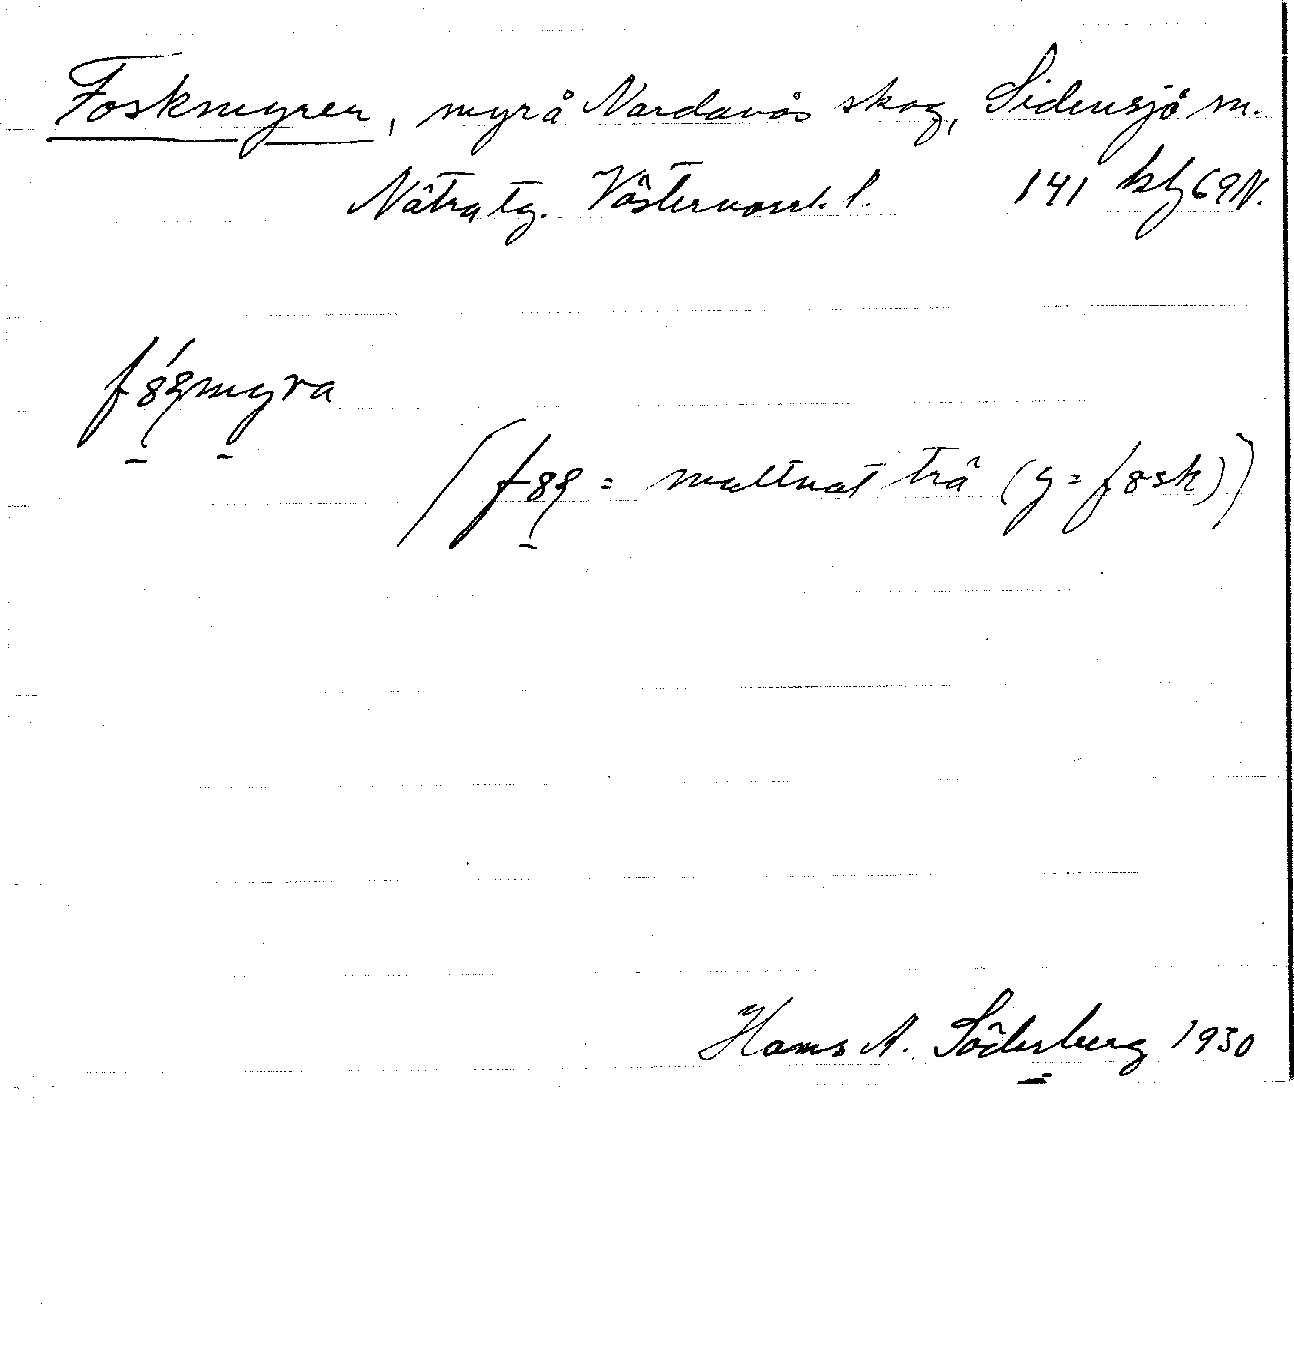 Foskmyren, myr å Nordanås skog, Sidensjö sn.
Nätra tg. Västernorrl. l. 141 kbl 69 N.
f8șmyra
(f8ș = multnat trä (y = f8sk))
Hans A. Söderberg 1930